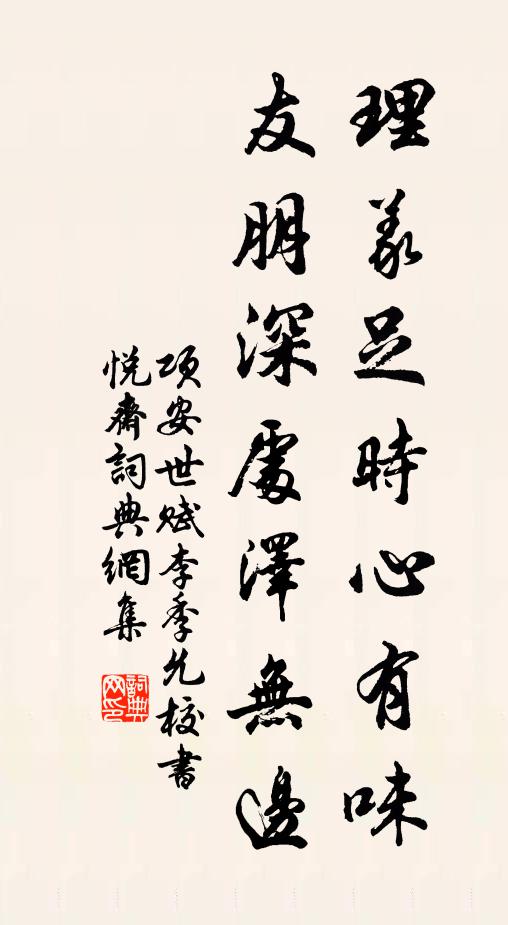 理義足時心有味
友朋深處澤無邊
項安世賦李季允校書
悅齋詞典網集
詞典
网印